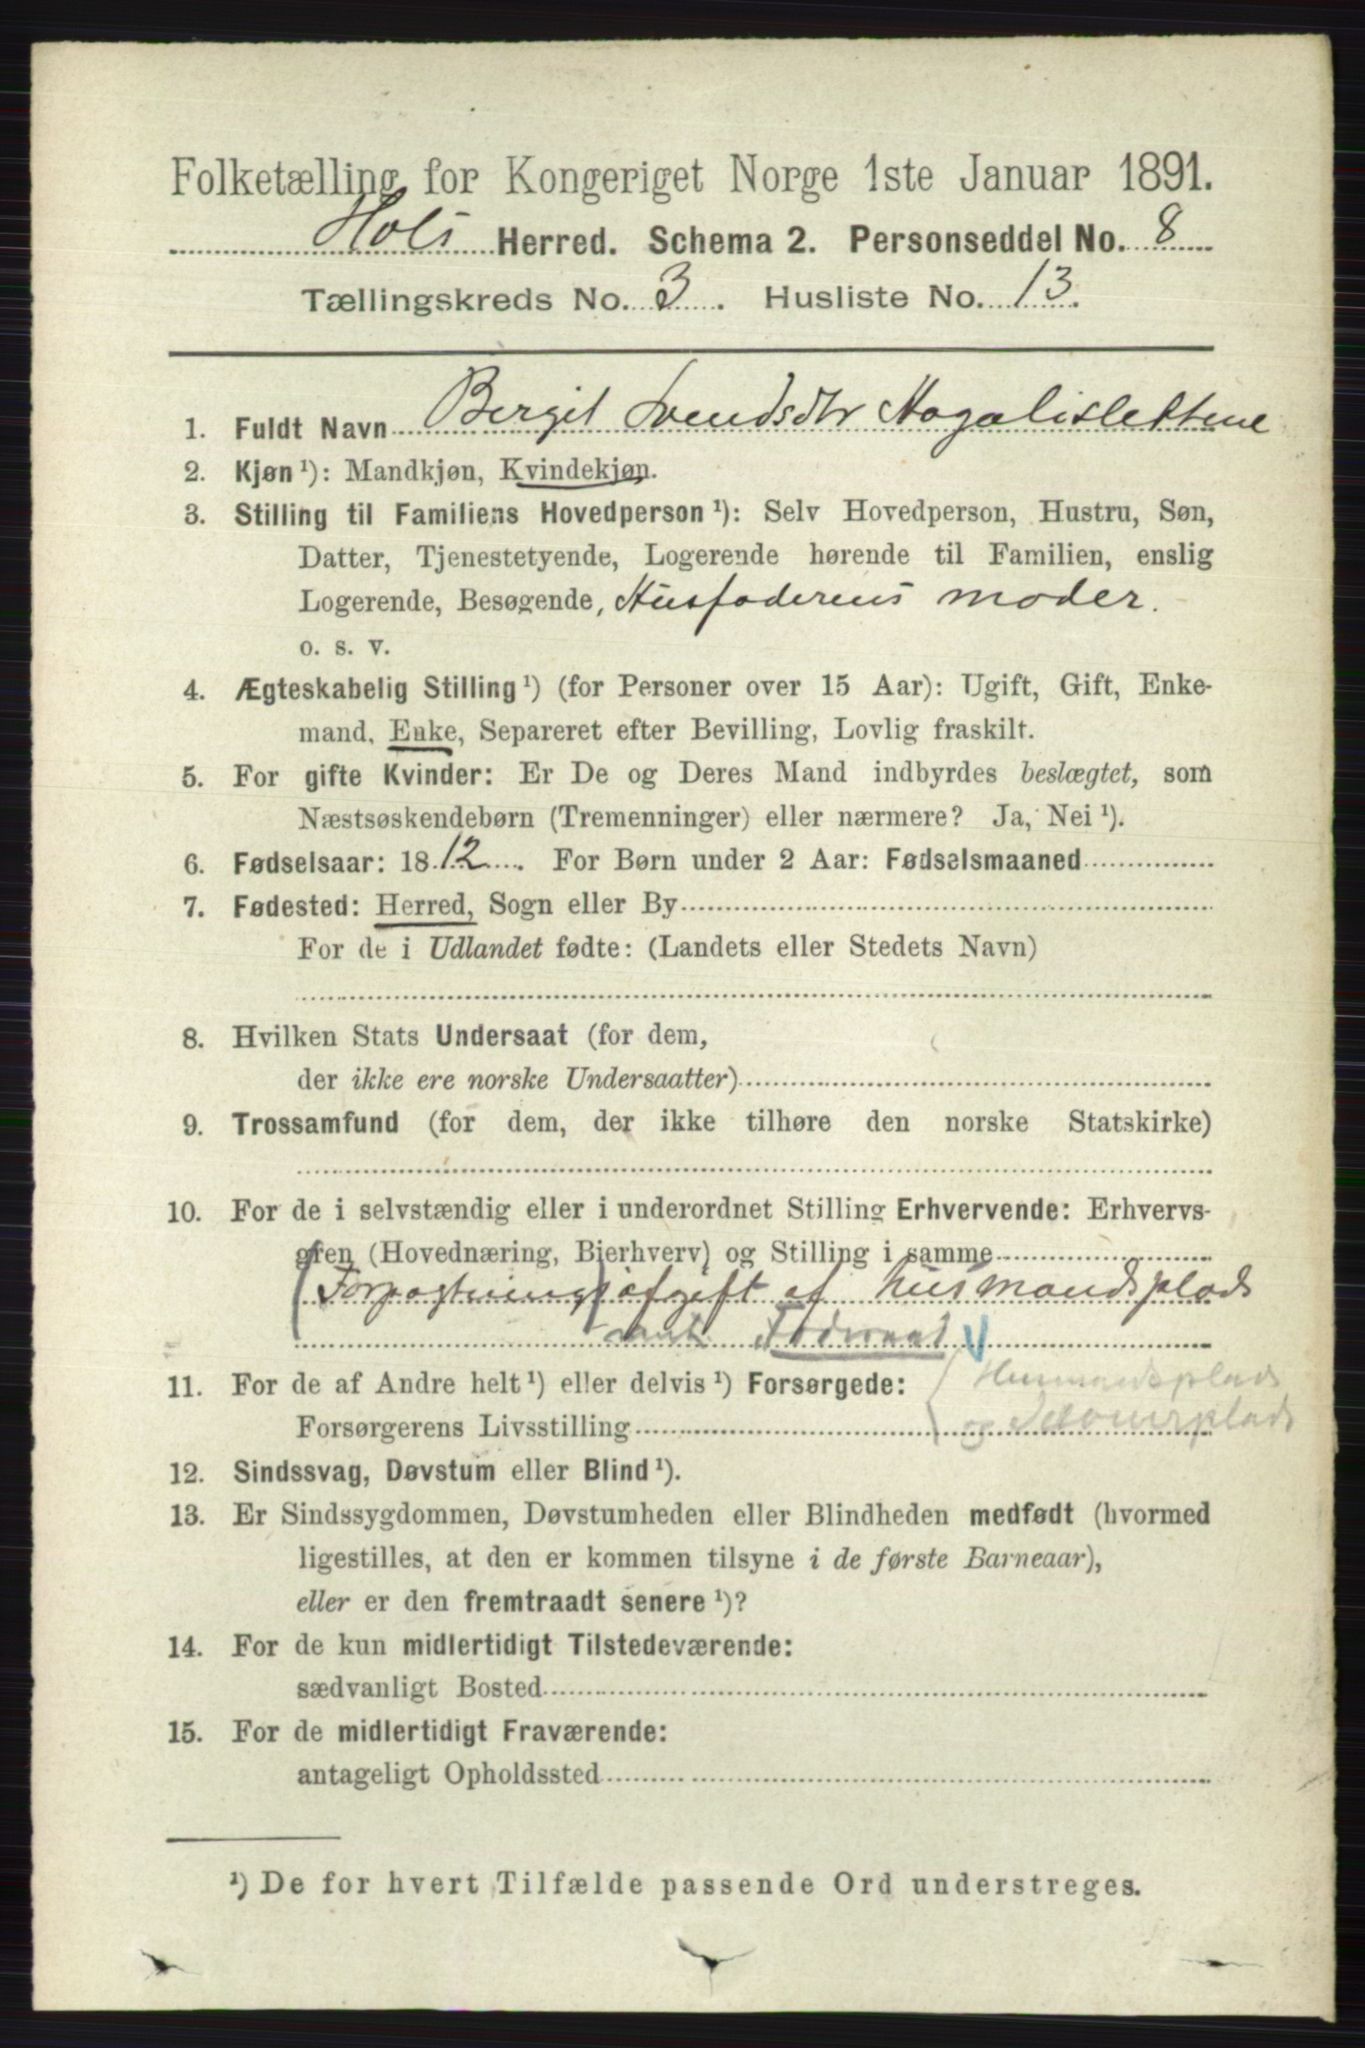 Folketælling for Kongeriget Norge 1ste Januar 1891.
Hols Herred. Schema 2. Personseddel No. 8
Tællingskreds No. 3. Husliste No. 13.
1. Fuldt Navn Bergit Svendsdtr Hagalislettene
2. Kjøn ¹): Mandkjøn, Kvindekjøn.
3. Stilling til Familiens Hovedperson ¹): Selv Hovedperson, Hustru, Søn,
Datter, Tjenestetyende, Logerende hørende til Familien, enslig
Logerende, Besøgende, Husfaderens moder.
o. s. v.
4. Ægteskabelig Stilling ¹) (for Personer over 15 Aar): Ugift, Gift, Enke-
mand, Enke, Separeret efter Bevilling, Lovlig fraskilt.
5. For gifte Kvinder: Er De og Deres Mand indbyrdes beslægtet, som
Næstsøskendebørn (Tremenninger) eller nærmere? Ja, Nei ¹).
6. Fødselsaar: 1812. For Børn under 2 Aar: Fødselsmaaned
7. Fødested: Herred, Sogn eller By
For de i Udlandet fødte: (Landets eller Stedets Navn)
8. Hvilken Stats Undersaat (for dem,
der ikke ere norske Undersaatter)
9. Trossamfund (for dem, der ikke tilhøre den norske Statskirke)
10. For de i selvstændig eller i underordnet Stilling Erhvervende: Erhvervs-
gren (Hovednæring, Bierhverv) og Stilling i samme
(Forpagtnings) afgift af husmandsplads
Föderaad
11. For de af Andre helt ¹) eller delvis ¹) Forsørgede: Husmandsplads
Forsørgerens Livsstilling og
12. Sindssvag, Døvstum eller Blind ¹).
13. Er Sindssygdommen, Døvstumheden eller Blindheden medfødt (hvormed
ligestilles, at den er kommen tilsyne i de første Barneaar),
eller er den fremtraadt senere ¹)?
14. For de kun midlertidigt Tilstedeværende:
sædvanligt Bosted
15. For de midlertidigt Fraværende:
antageligt Opholdssted
¹) De for hvert Tilfælde passende Ord understreges.